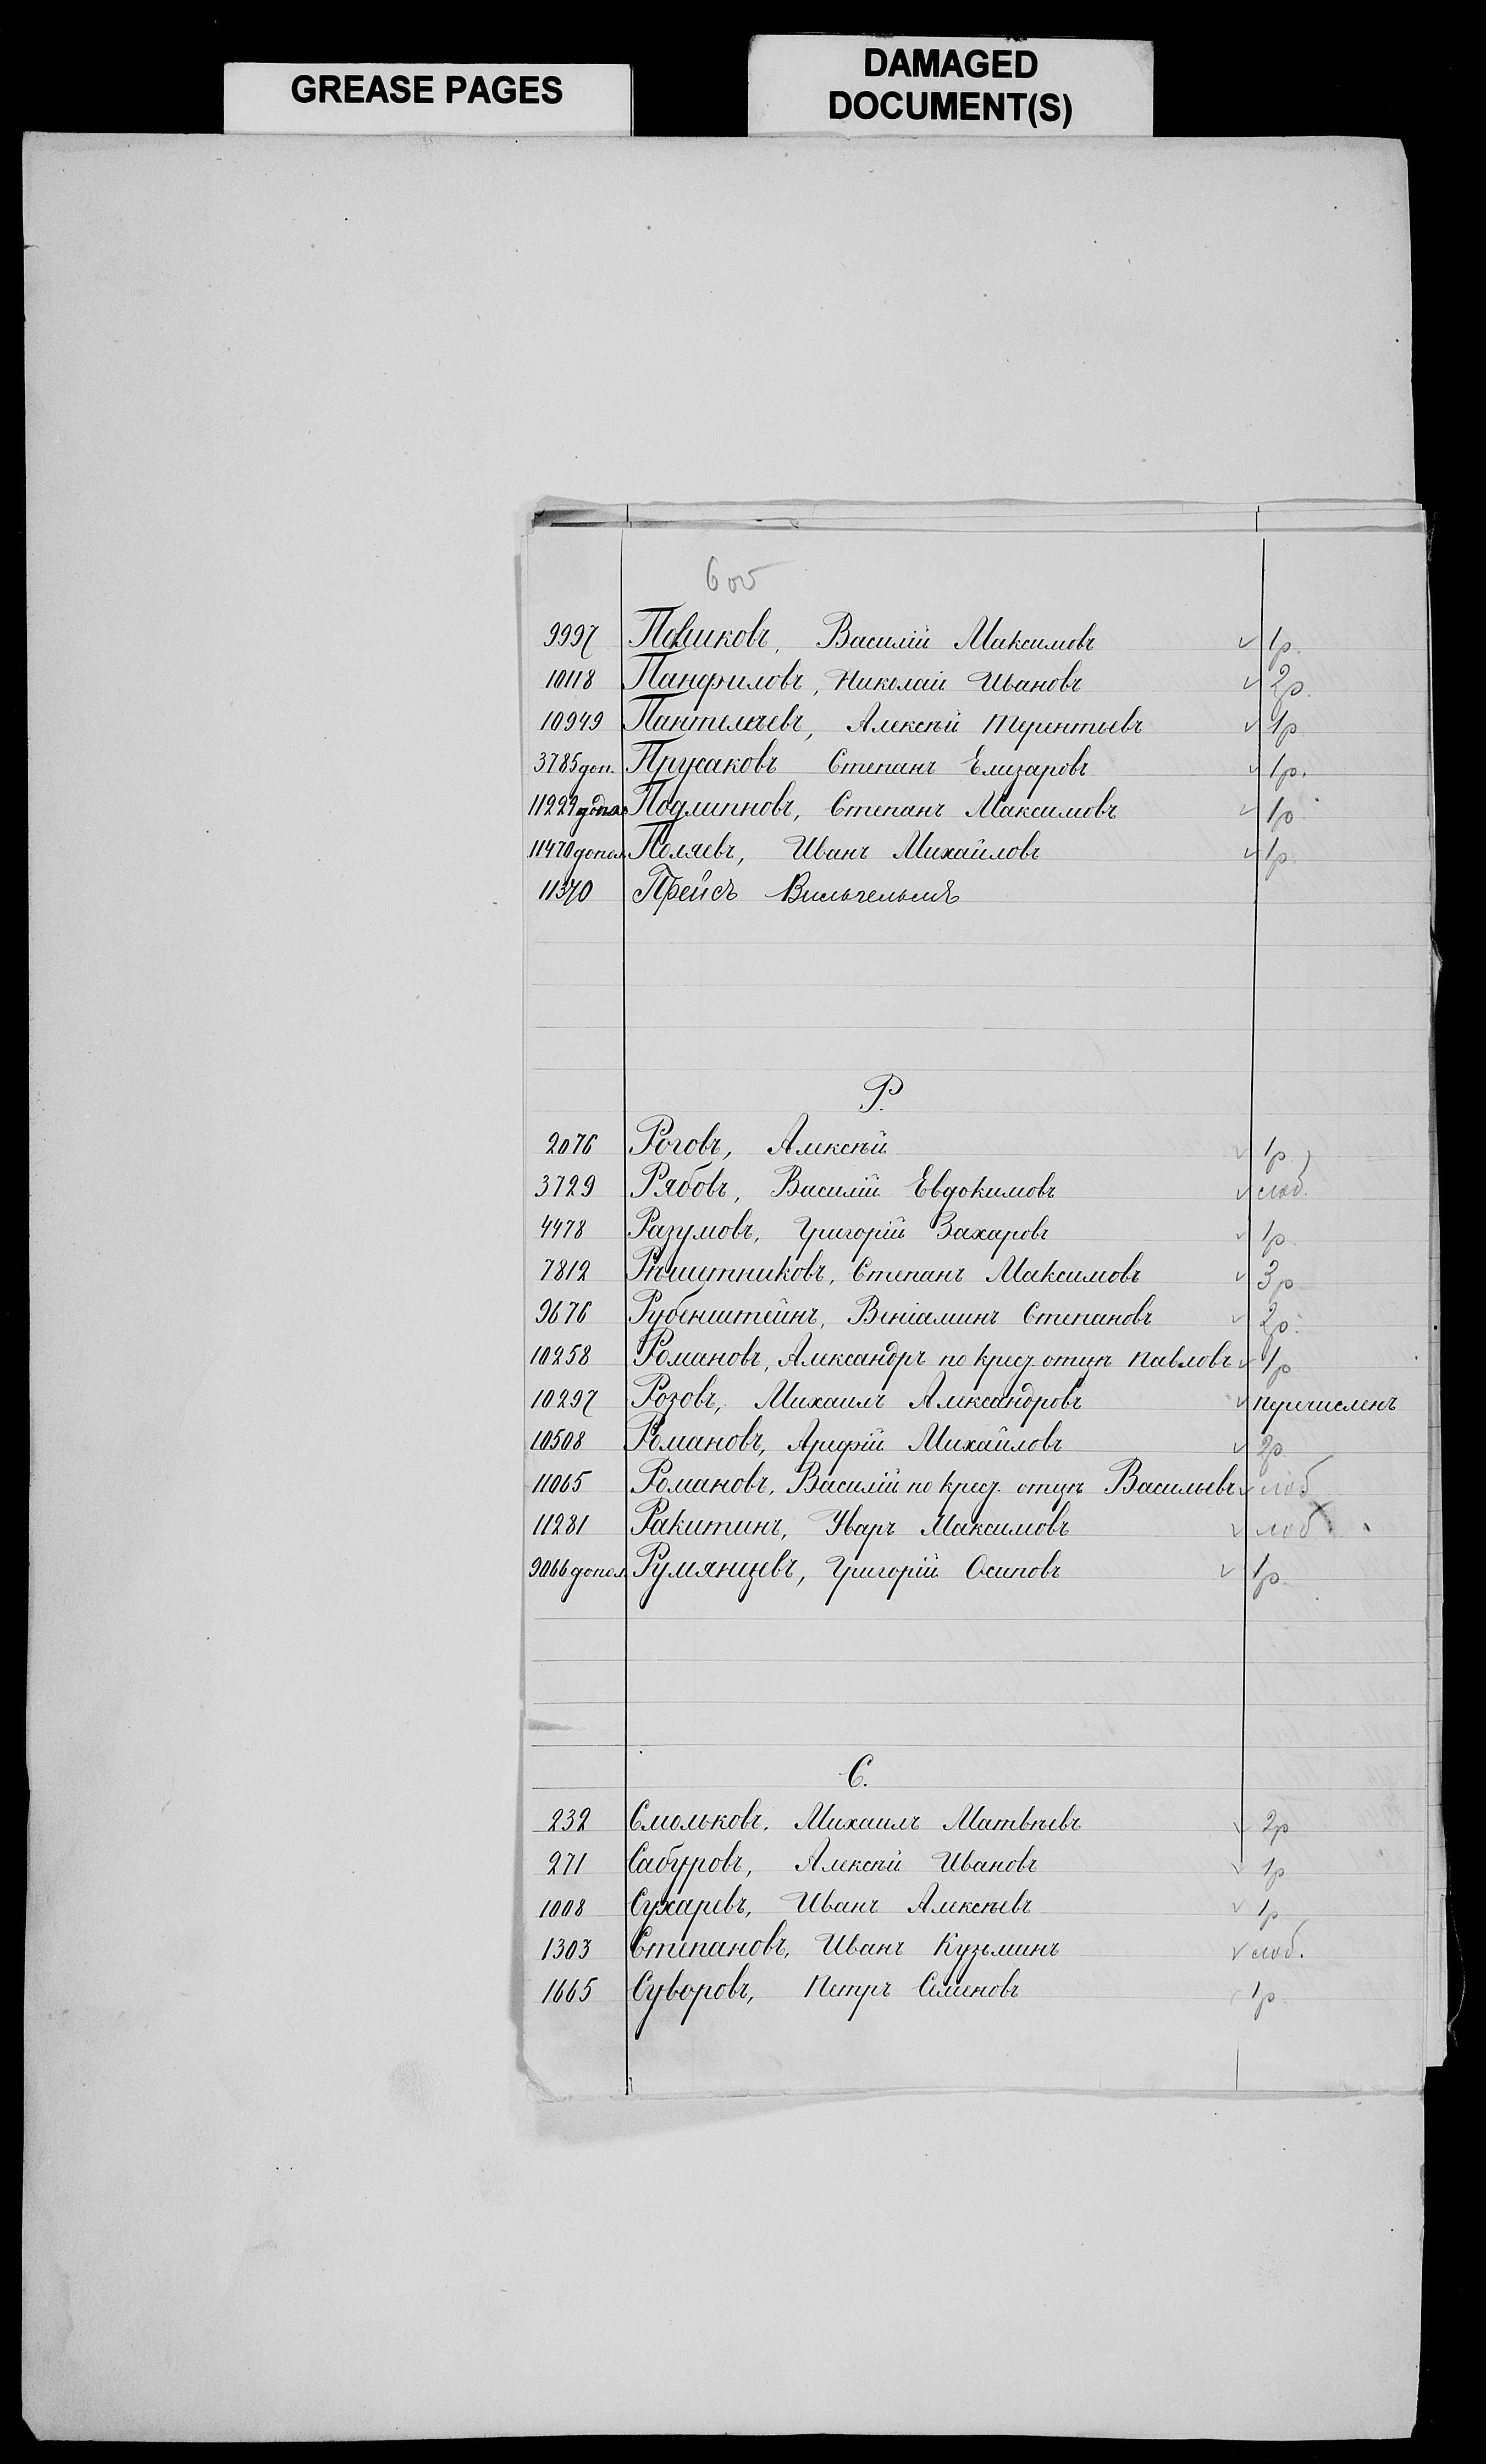 GREASE PAGES
DAMAGED
DOCUMENT(S)
6 об
9997 Василій Максимовъ √ 1р.
10118 Панфиловъ, Николай Ивановъ √ 2р.
10949 Пантелѣевъ, Алексѣй Терентьевъ √ 1р
3785 доп. Прусаковъ Степанъ Елизаровъ √ 1р.
11229 Подлипновъ, Степанъ Максимовъ √ 1р
11470 допол. Поляевъ, Иванъ Михайловъ √ 1р.
11370 Прейсъ Вильгельмъ
Р.
2076 Роговъ, Алексѣй √ 1р
3729 Рябовъ, Василій Евдокимовъ √ слоб.
4478 Разумовъ, Григорій Захаровъ √ 1р.
7812 Рѣшетниковъ, Степанъ Максимовъ √ 3р
9676 Рубенштейнъ, Веніаминъ Степановъ √ 2р.
10258 Романовъ, Александръ по крес. отцѣ Павловъ √ 1р
10297 Розовъ, Михаилъ Александровъ √ перечисленъ
10508 Романовъ, Арефій Михайловъ √ 2р
11065 Романовъ, Василій по крес. отцѣ Васильевъ √ слоб
11281 Ракитинъ, Уваръ Максимовъ √ слоб
9066 допол. Румянцевъ, Григорій Осиповъ √ 1р.
С.
232 Смольковъ, Михаилъ Матвѣевъ √ 2р
271 Сабуровъ, Алексѣй Ивановъ √ 1р
1008 Сухаревъ, Иванъ Алексѣевъ √ 1р
1303 Степановъ, Иванъ Кузьминъ √ слоб.
1665 Суворовъ, Петръ Семеновъ 1р